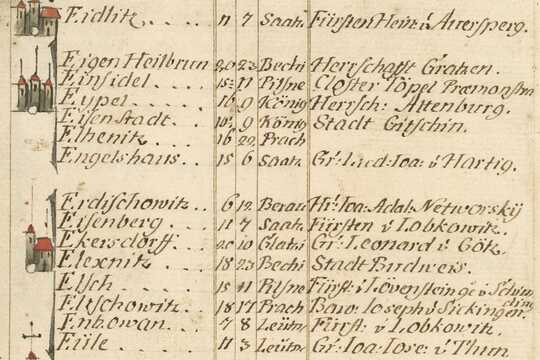 Eidlitz . . 11 7 Saatz. Fürsten Hein: v Auersperg.
Eigen Heilbrun 20 23 Bechi Herrschafft Gratzen.
Einsidel . . . . 15 11 Pilsne Closter Töpel Præmonstra
Eypel . . . . . 16 9 König Herrsch: Altenburg.
Eisenstadt . . 10 9 König Stadt Gitschin.
Elhenitz . . . 16 22 Prach
Engelshaus . . . 15 6 Saatz. Gr: Lud: Ioa: v Hartig.
Erdischowitz . . 6 12 Berau Hr: Ioa: Adal: Networskij
Eisenberg . . . 11 7 Saatz. Fürsten v Lobkowitz.
Ekersdorff . . . 20 10 Glatz. Gr: Leonard v Götz.
Elexnitz . . . . 18 23 Bechi Stadt Budweis.
Elsch . . . . . 15 11 Pilsne Fürst: v Lövensteinge: v
Eltschowitz . . 18 17 Prach Bauo: Ioseph v Sickingen.
Enhowan . . . 7 8 Leütm Fürst: v Lobkowitz.
Eule . . . . . 11 3 Leütm Gr: Ioa: Iose: v Thun.